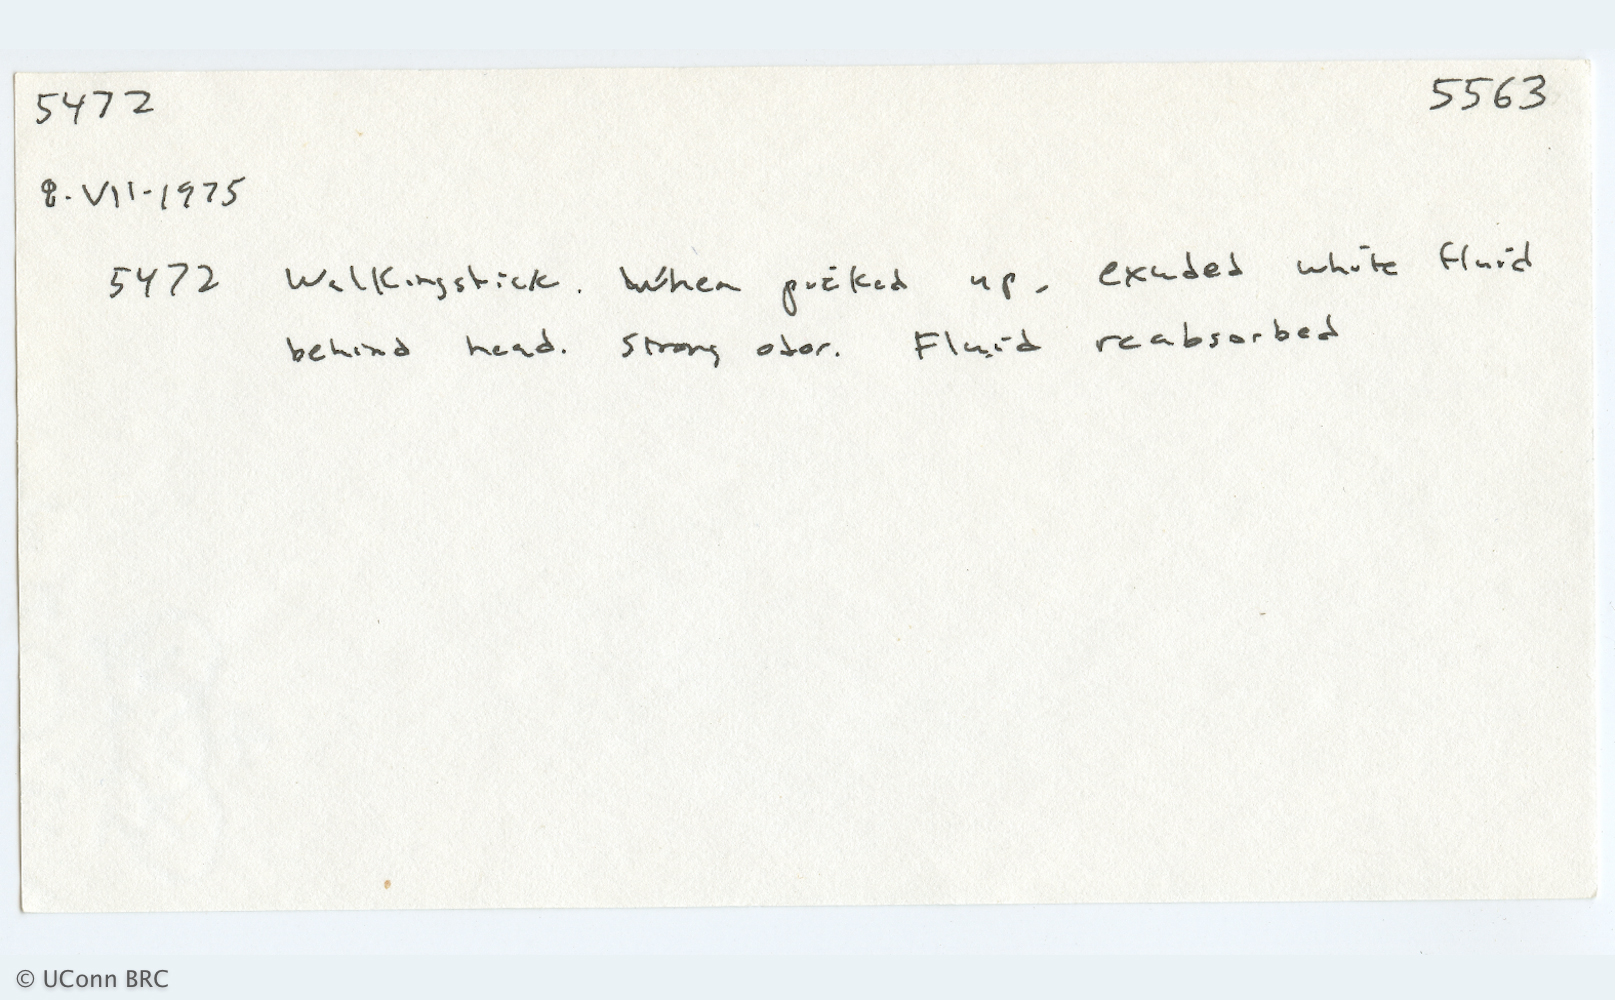 5472 5563
8-VII-1975
5472 Walkingstick. When picked up, exuded white fluid
behind head. Strong odor. Fluid reabsorbed
© UConn BRC